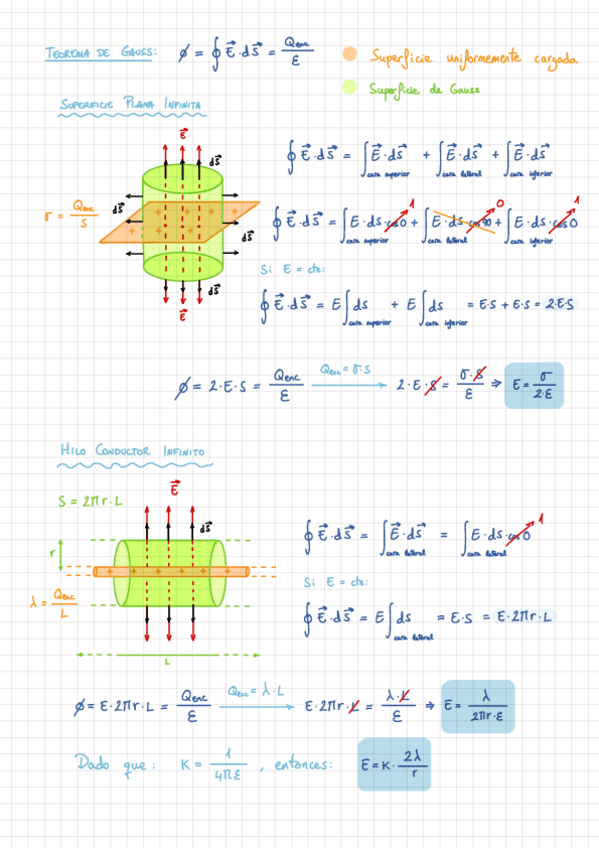 TEOREMA DE GAUSS: ϕ = ∮ E⃗·dS⃗ = Qenc/ε
Superficie uniformemente cargada
Superficie de Gauss
SUPERFICIE PLANA INFINITA
E⃗
dS⃗
∮ E⃗·dS⃗ = ∫cara superior E⃗·dS⃗ + ∫cara lateral E⃗·dS⃗ + ∫cara inferior E⃗·dS⃗
dS⃗
σ = Qenc/S
+ + + + + +
dS⃗
∮ E⃗·dS⃗ = ∫cara superior E·dS·cos0 1 + ∫cara lateral E·dS·cos90 0 + ∫cara inferior E·dS·cos0 1
Si E = cte:
dS⃗
E⃗
∮ E⃗·dS⃗ = E ∫cara superior dS + E ∫cara inferior dS = E·S + E·S = 2·E·S
ϕ = 2·E·S = Qenc/ε Qenc = σ·S → 2·E·S = σ·S/ε ⇒ E = σ/2·ε
HILO CONDUCTOR INFINITO
S = 2πr·L
E⃗
dS⃗
∮ E⃗·dS⃗ = ∫cara lateral E⃗·dS⃗ = ∫cara lateral E·dS·cos0 1
r
+ + + + +
Si E = cte:
λ = Qenc/L
∮ E⃗·dS⃗ = E ∫cara lateral dS = E·S = E·2πr·L
L
ϕ = E·2πr·L = Qenc/ε Qenc = λ·L → E·2πr·L = λ·L/ε ⇒ E = λ/2πr·ε
Dado que: K = 1/4πε , entonces: E = K·2λ/r